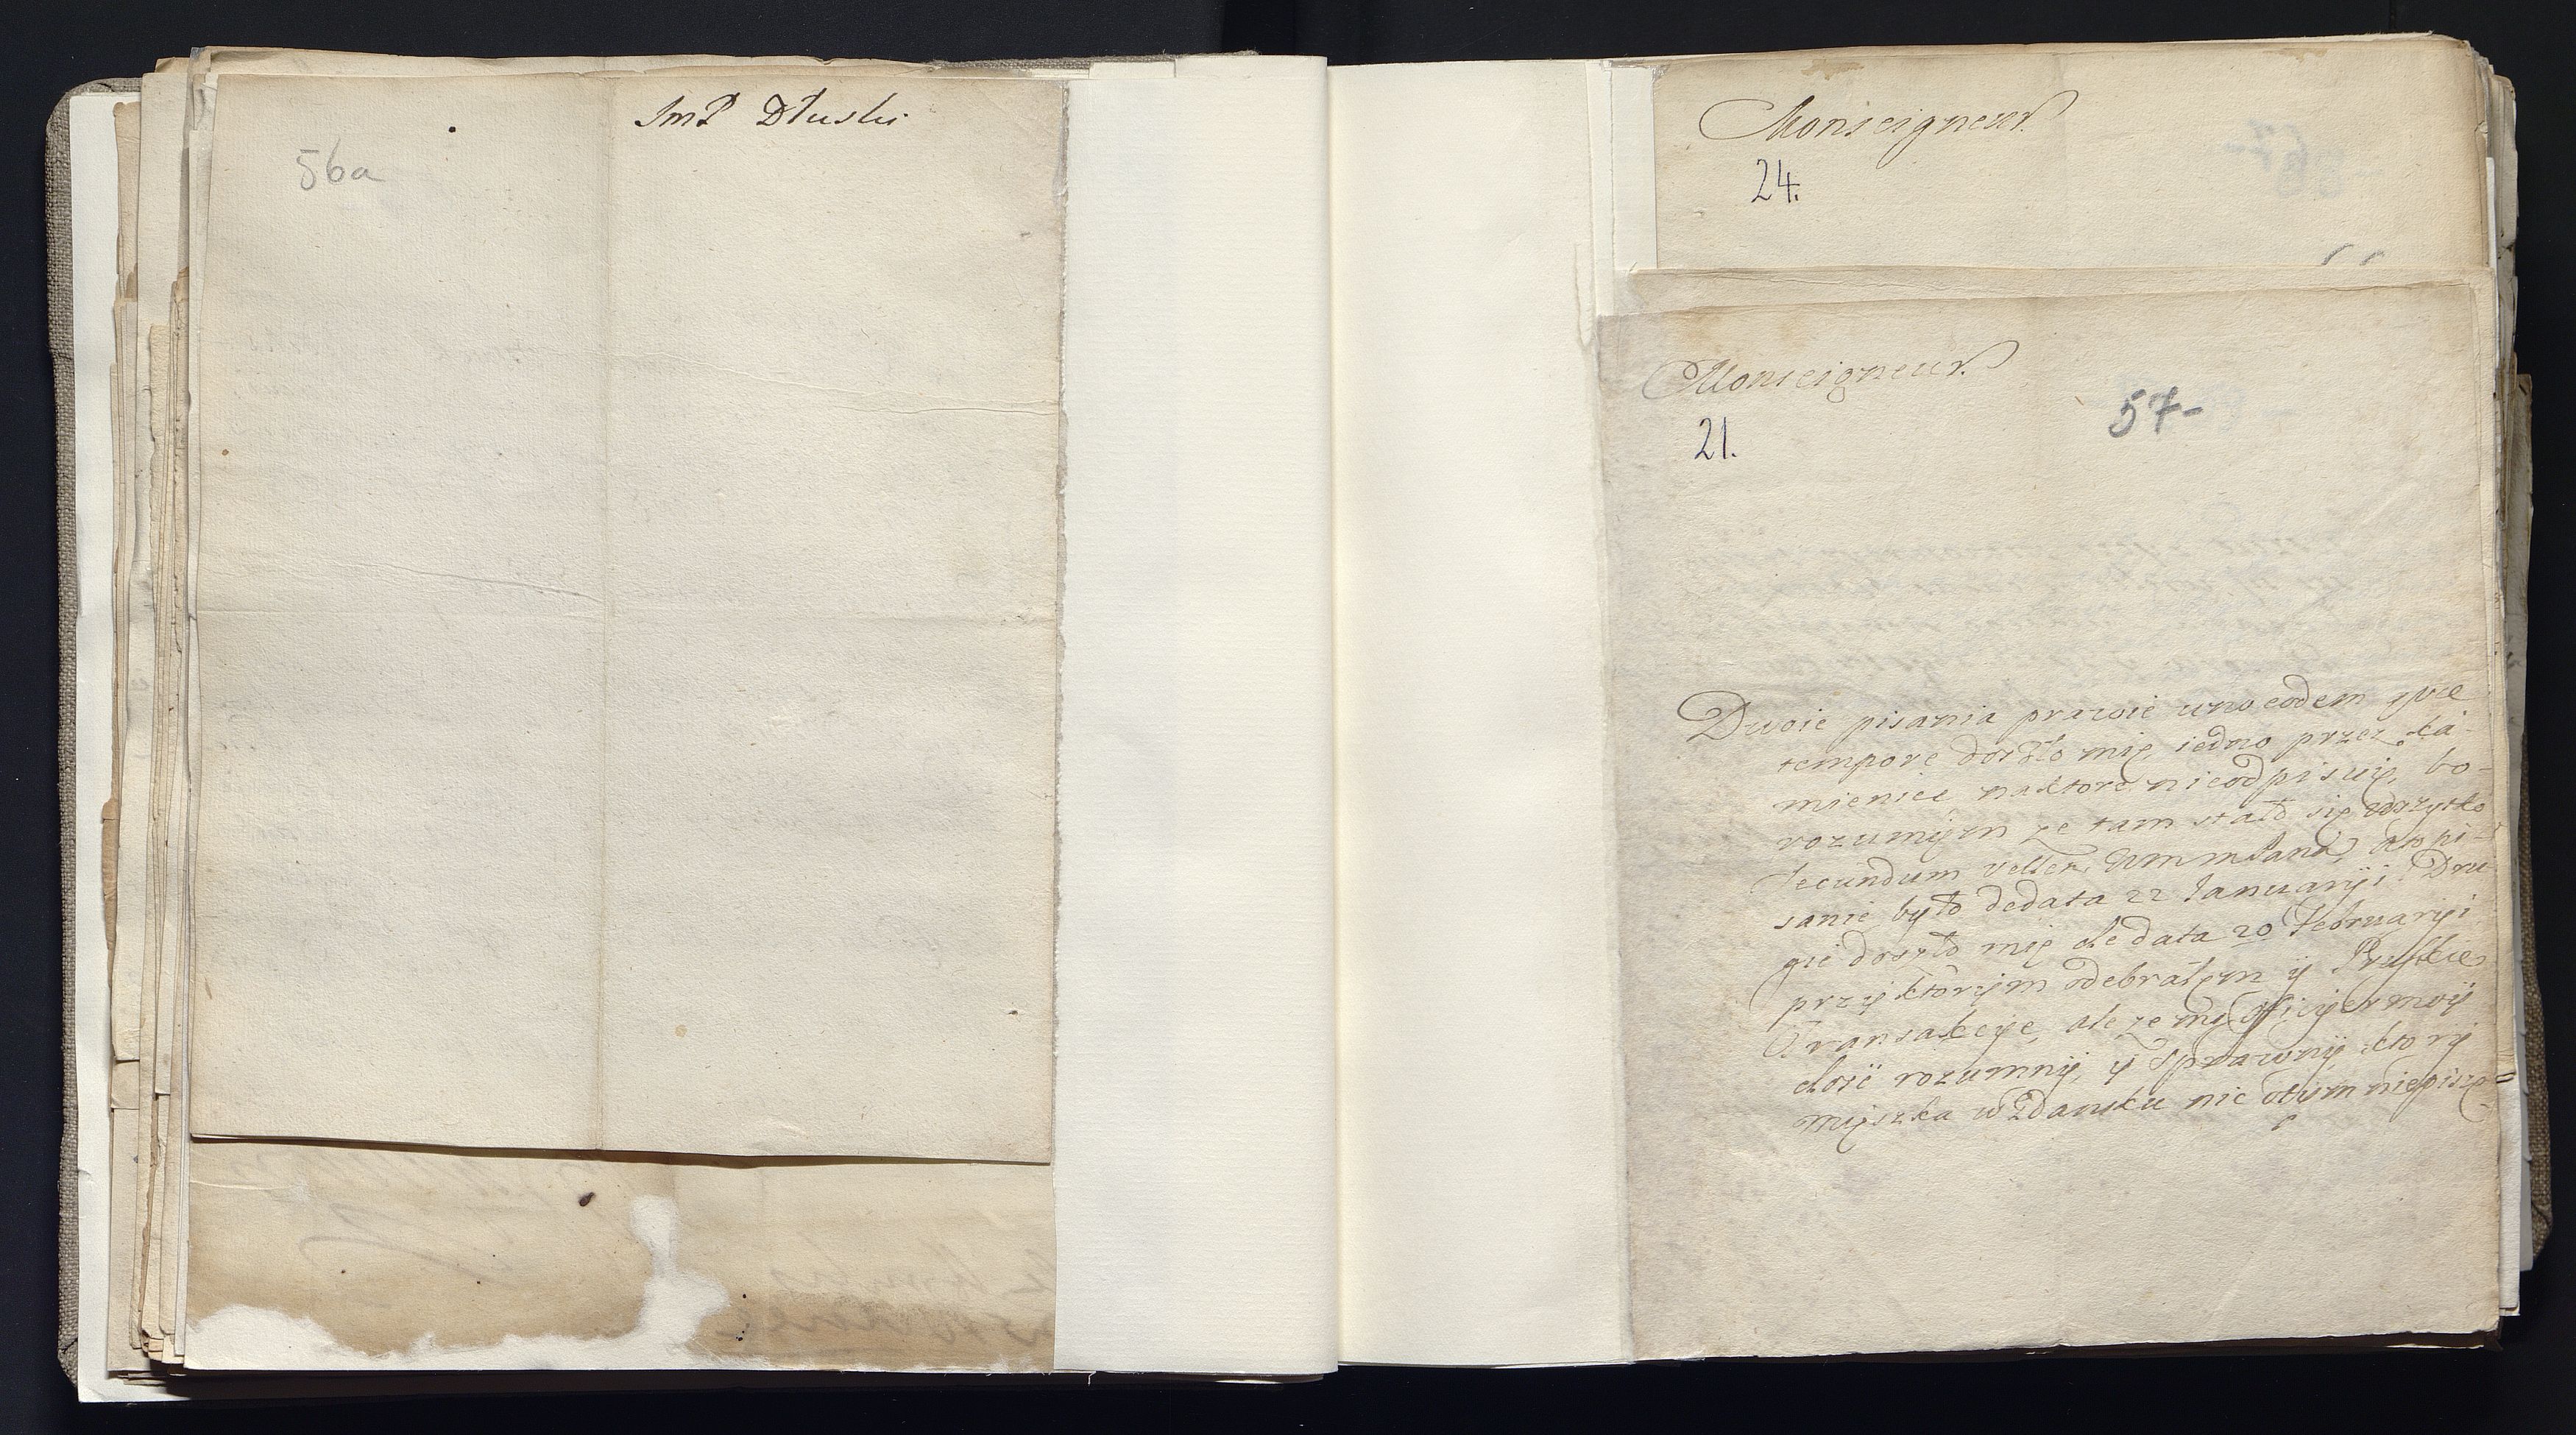 JmP Dłuski
56a
Monseigneur.
24.
Monseigneur.
21.
57-
Dwoie pisania prawie uno eodem que
tempore doszło mię, iedno przez Ka-
mieniec na ktore nieodpisuię, bo-
rozumięm ze tam stało się wszystko
secundum velle Wm mPana, a to pi-
sanie było dedata 22 Januarÿi. Dru
gie doszło mię de data 20 Februarÿi
przÿ ktorÿm odebrałem ÿ Pruskie
Transakcÿe, ale ze mÿ Officÿer moÿ
dosić rozumnÿ, ÿ sprawnÿ, ktorÿ
mięszka w Gdansku nic otÿm niepisze